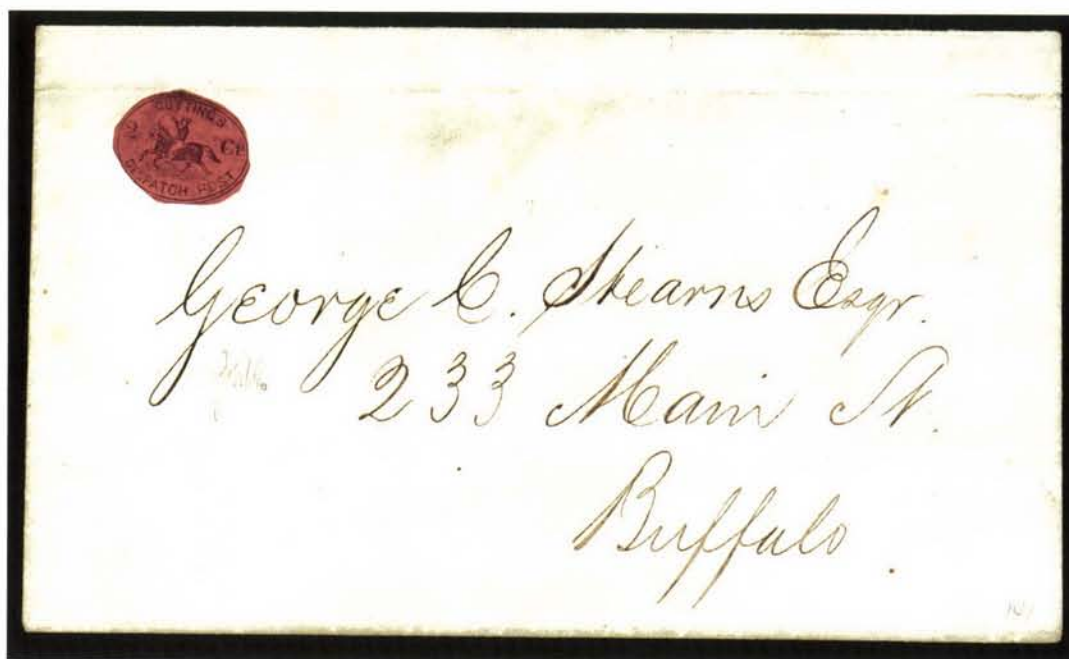 CUTTING'S
2 Cts
DESPATCH POST
George C. Stearns Esqr.
233 Main St.
Buffalo